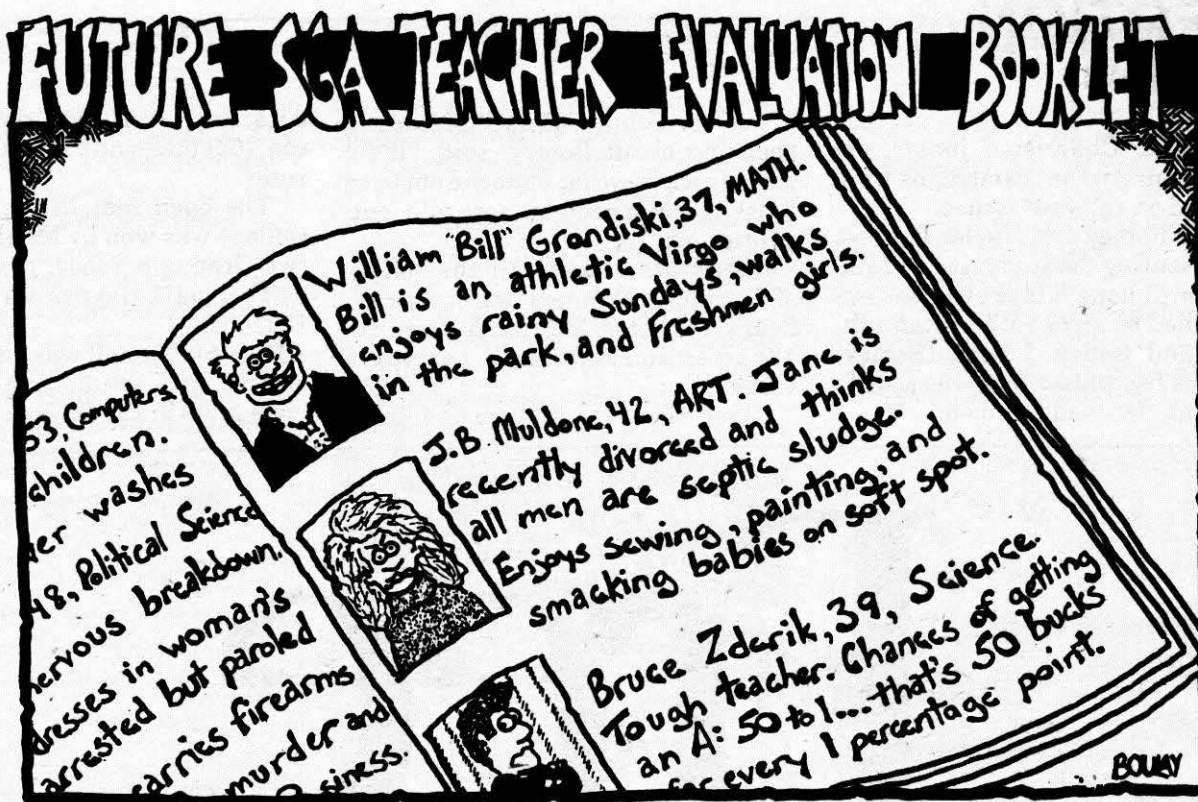 FUTURE SGA TEACHER EVALUATION BOOKLET
53, Computers.
children.
washes
48, Political Science
nervous breakdown.
dresses in woman's
arrested but paroled
carries firearms
murder and
William "Bill" Grandiski, 37, MATH.
Bill is an athletic Virgo who
enjoys rainy Sundays, walks
in the park, and Freshmen girls.
J.B. Muldone, 42, ART. Jane is
recently divorced and thinks
all men are septic sludge.
Enjoys sewing, painting, and
smacking babies on soft spot.
Bruce Zderik, 39, Science.
Tough teacher. Chances of getting
an A: 50 to 1... that's 50 bucks
for every 1 percentage point.